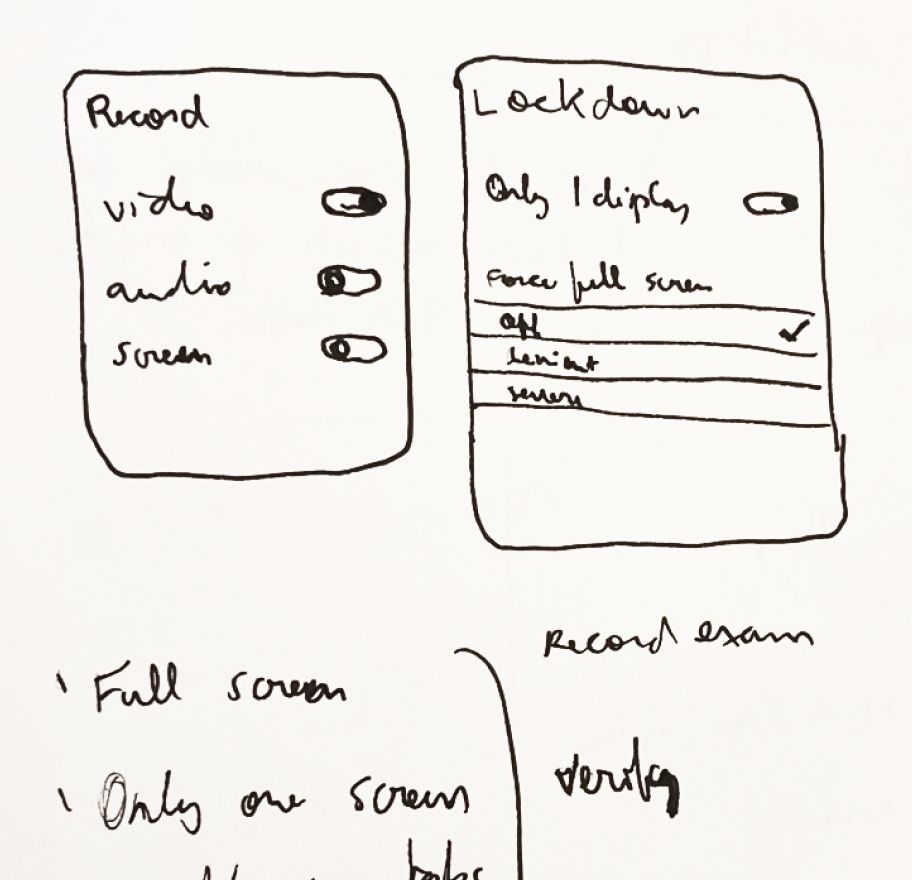 Record
video
audio
screen
Lockdown
Only 1 display
Force full screen
off
lenient
severe
Record exam
verify
Full screen
Only one screen
tabs